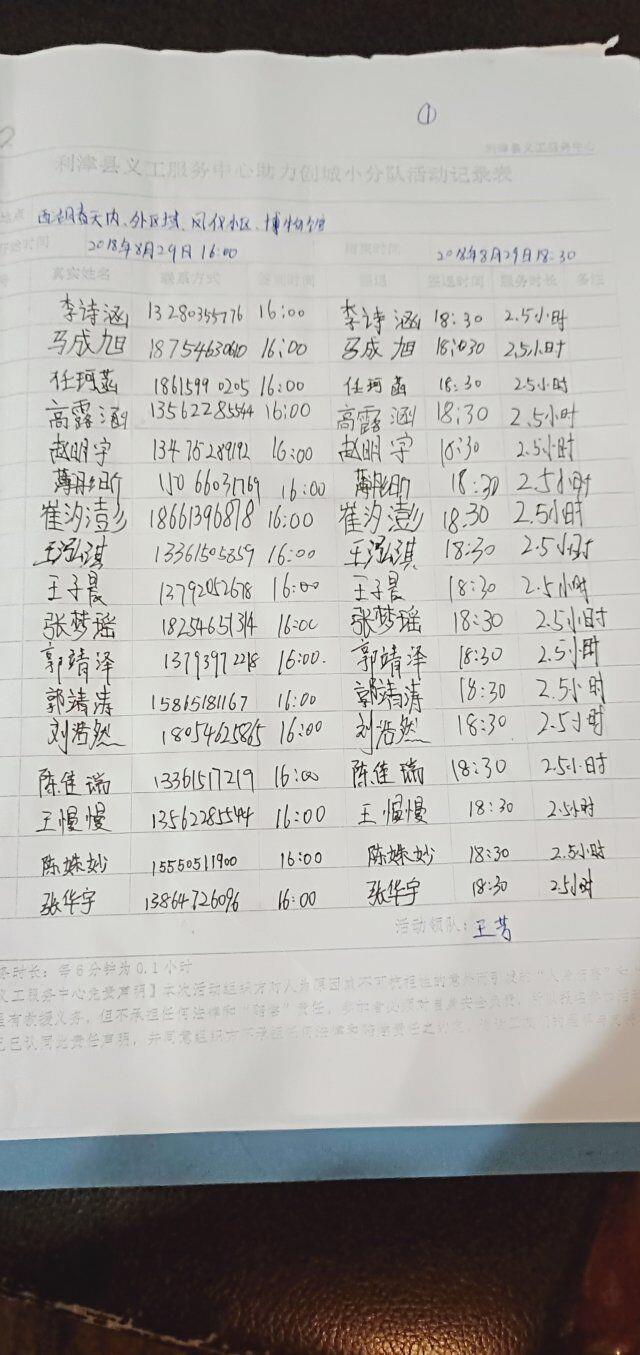 ①
利津县义工服务中心
利津县义工服务中心助力创城小分队活动记录表
地点 内、外区域、凤仪小区、博物馆
时间 2018年8月29日16:00 结束时间 2018年8月29日18:30
真实姓名 联系方式 签到时间 签退 签退时间 服务时长 备注
李诗涵 13280355776 16:00 李诗涵 18:30 2.5小时
马成旭 18754630610 16:00 马成旭 18:030 2.5小时
任珂菡 18615990205 16:00 任珂菡 18:30 2.5小时
高露涵 13562285544 16:00 高露涵 18:30 2.5小时
赵明宇 13475289192 16:00 赵明宇 18:30 2.5小时
15066031769 16:00 18:30 2.5小时
崔汐澎 18661396878 16:00 崔汐澎 18:30 2.5小时
王泓淇 13361505859 16:00 王泓淇 18:30 2.5小时
王子晨 13792052678 16:00 王子晨 18:30 2.5小时
张梦瑶 18254651314 16:00 张梦瑶 18:30 2.5小时
郭靖泽 13793972218 16:00. 郭靖泽 18:30 2.5小时
郭靖涛 15865181167 16:00 郭靖涛 18:30 2.5小时
刘浩然 18054625865 16:00 刘浩然 18:30 2.5小时
陈佳瑞 13361517219 16:00 陈佳瑞 18:30 2.5小时
王慢慢 13562285544 16:00 王慢慢 18:30 2.5小时
陈姝妙 15550511900 16:00 陈姝妙 18:30 2.5小时
张华宇 13864726096 16:00 张华宇 18:30 2.5小时
活动领队：王芳
务时长：每6分钟为0.1小时
义工服务中心免责声明】本次活动组织方对人为原因或不可抗拒性的意外而引发的“人身伤害”
有救援义务，但不承担任何法律和“赔偿”责任，参加者必须对自身安全负责，
已认同此责任声明，并同意组织方不承担任何法律和赔偿责任之约定。